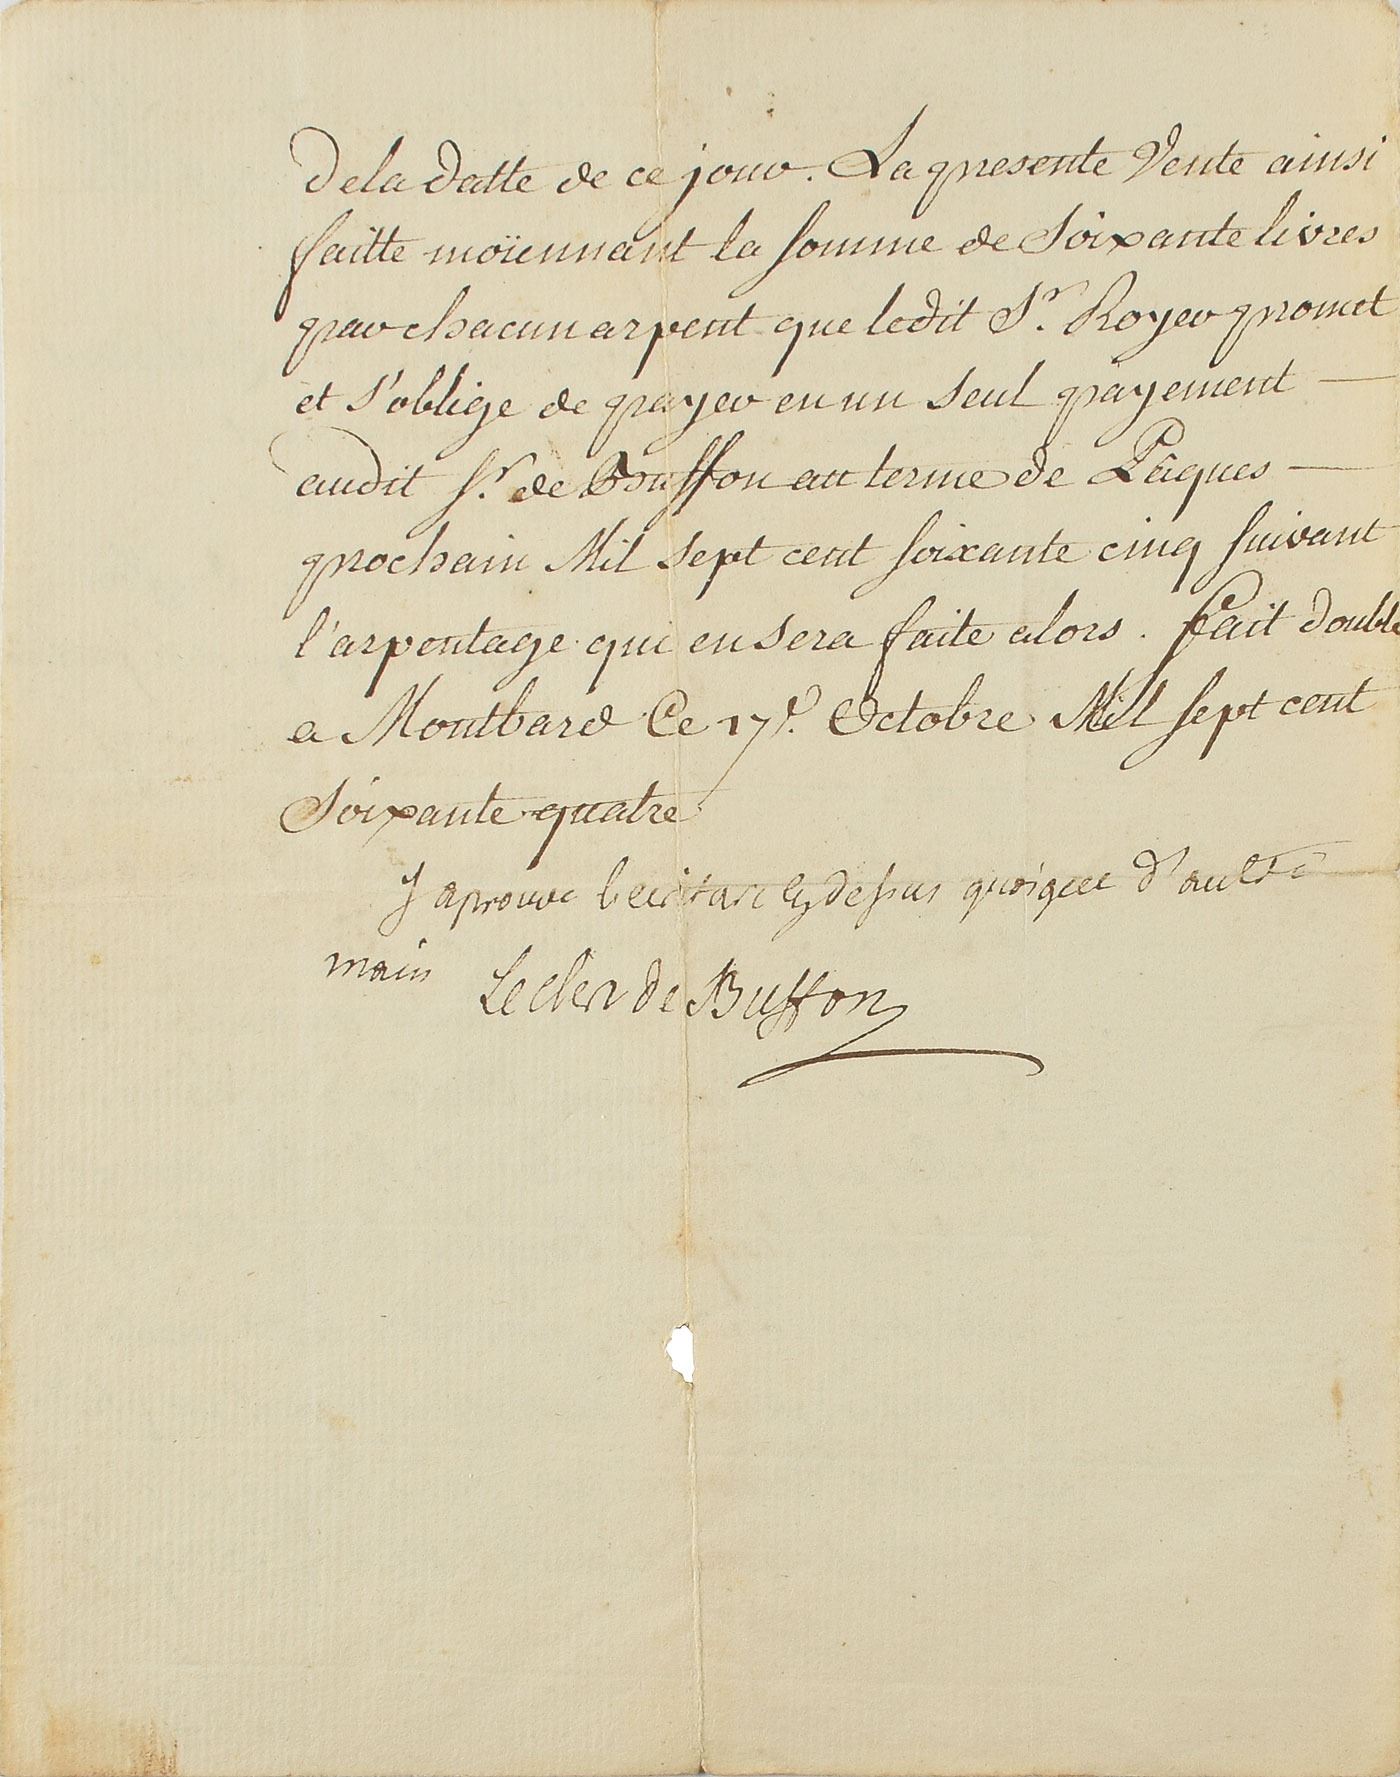 dela datte de ce jour. La presente Vente ainsi
faitte moïennant la somme de Soixante livres
par chacun arpent que ledit Sr. Royer promet
et s'oblige de payer en un seul payement —
audit Sr. de Buffon au terme de Pâques —
prochain Mil sept cent soixante cinq suivant
l'arpentage qui en sera faite alors. fait double
a Montbard Ce 17e. Octobre Mil sept cent
Soixante quatre
J aprouve lecriture cy dessus quoique d'autre
main Leclerc de Buffon